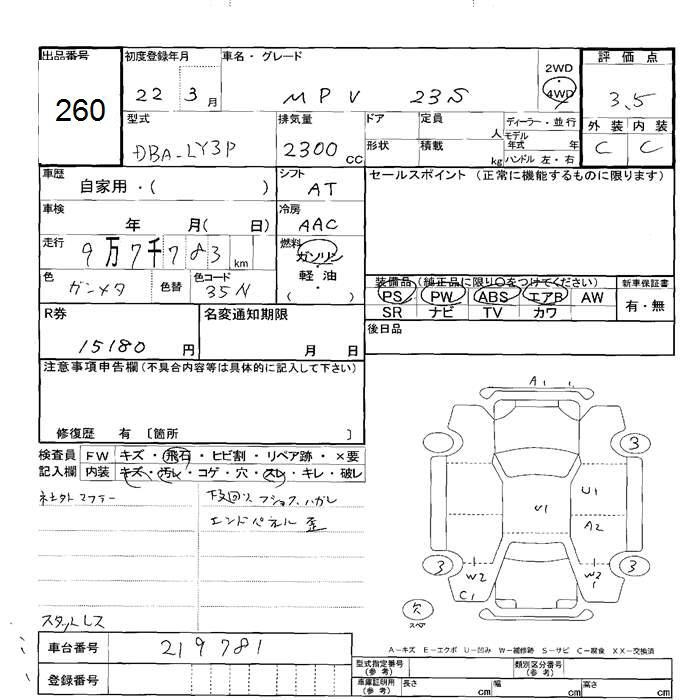 出品番号 初度登録年月 車名・グレード 2WD 評価点
260 22 3月 MPV 23S 4WD 3.5
型式 排気量 ドア 定員 人 ディーラー・並行 外装 内装
DBA-LY3P 2300cc 形状 積載 kg モデル年式 年 ハンドル 左・右 C C
車歴 自家用・( ) シフト AT セールスポイント (正常に機能するものに限ります)
車検 年 月( 日) 冷房 AAC
走行 9万7千783km 燃料 ガソリン・軽油・( )
色 ガンメタ 色替 色コード 35N
装備品(純正品に限り○をつけてください) 新車保証書
PS PW ABS エアB AW 有・無
SR ナビ TV カワ
R券 15180円 名変通知期限 月 日 後日品
注意事項申告欄(不具合内容等は具体的に記入して下さい)
修復歴 有 〔箇所 〕
検査員 FW キズ・飛石・ヒビ割・リペア跡・×要
記入欄 内装 キズ・汚レ・コゲ・穴・スレ・キレ・破レ
社外マフラー 下廻り
エンドパネル歪
スタットレス
A1
3
U1
U1
A2
3 W2 W2 3
C1
欠
スペア
A-キズ E-エクボ U-凹み W-補修跡 S-サビ C-腐食 XX-交換済
車台番号 219781 型式指定番号(参考) 類別区分番号(参考)
登録番号 車庫証明用(参考) 長さ cm 幅 cm 高さ cm